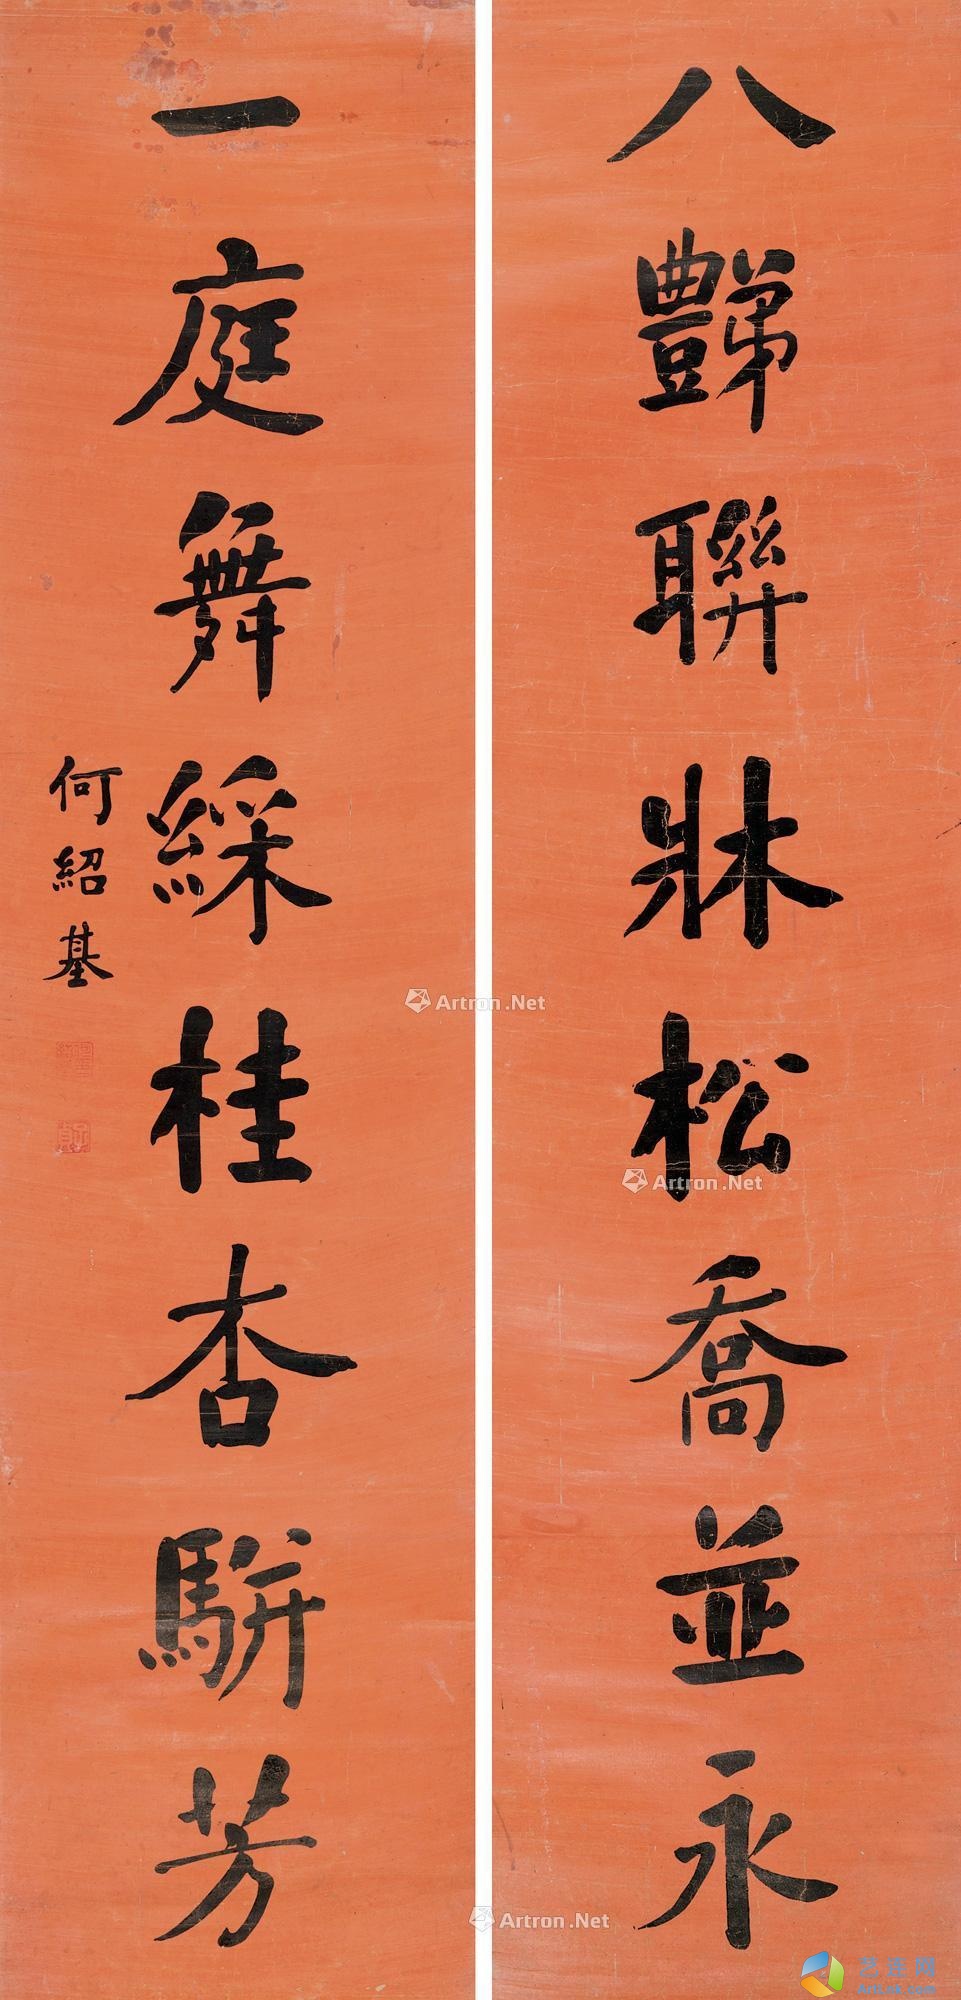 八豑聯牀松喬並永
一庭舞綵桂杏駢芳
何紹基
子貞
Artron.Net
Artron.Net
Artron.Net